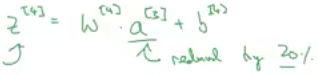 z^[4] = W^[4] · a^[3] + b^[4]
reduced by 20%.